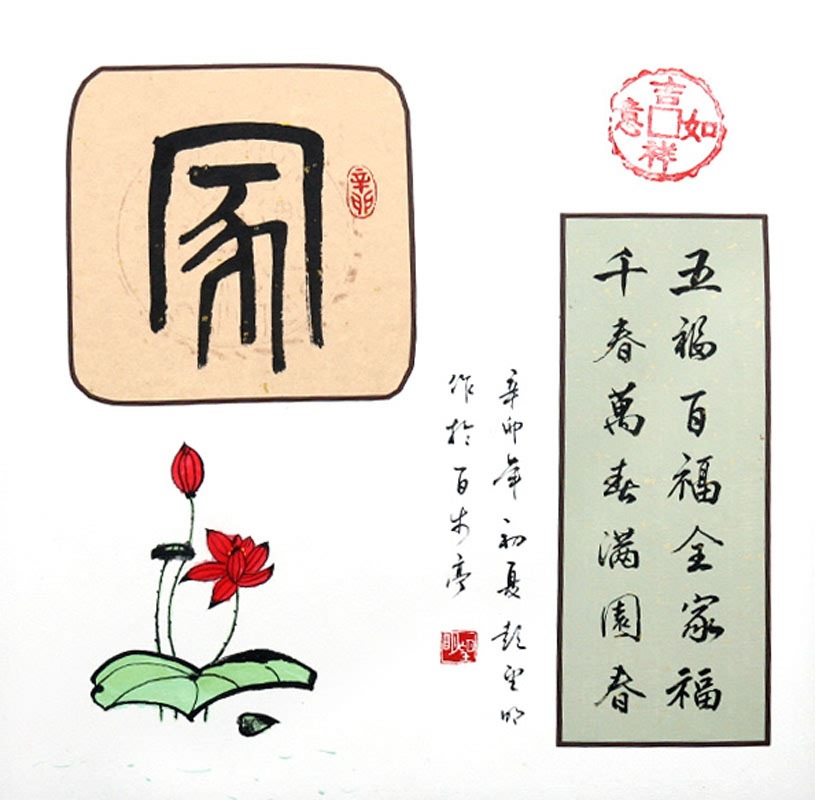 吉祥如意
五福百福全家福
千春萬春满園春
家
辛卯
辛卯年初夏彭望明
作於百步亭
望明